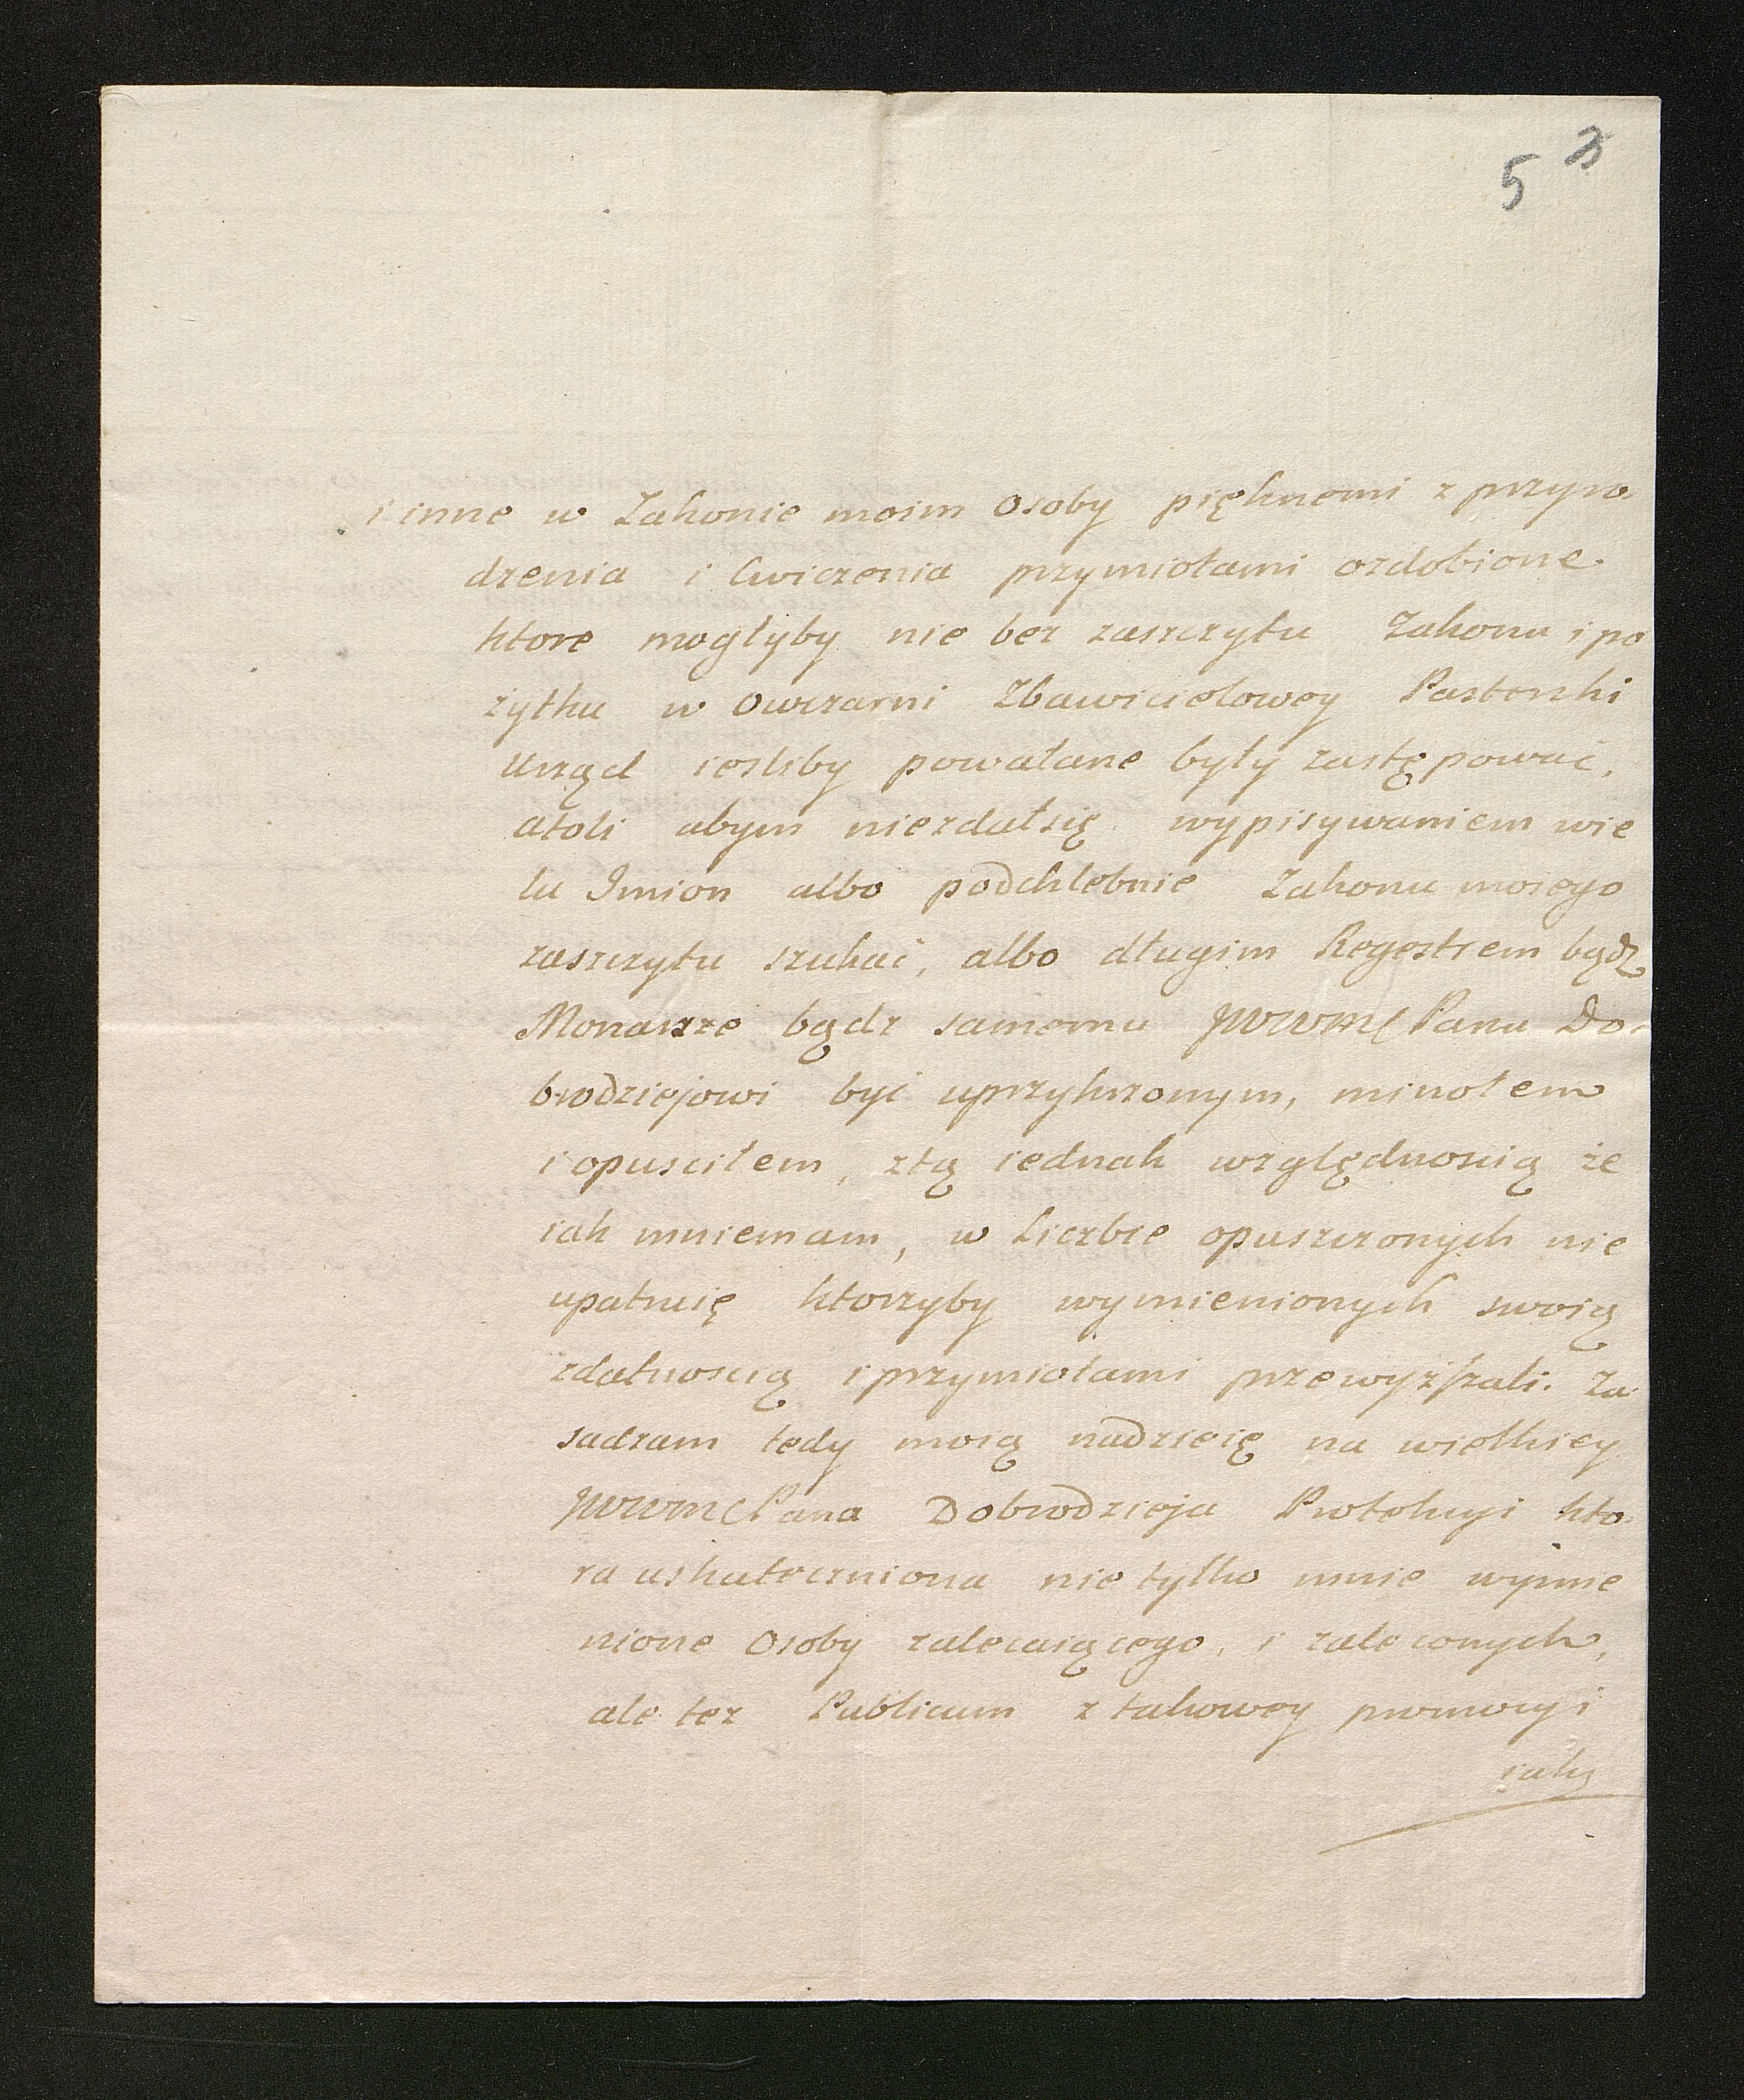 5 3
i inne w Zakonie moim osoby pięknemi z przyro
dzenia i Cwiczenia przymiotami ozdobione
ktore mogłyby nie bez zaszczytu Zakonu i po
żytku w Owczarni Zbawicielowey Pasterski
Urząd iesliby powołane były zastępować,
atoli abym niezdał się wypisywaniem wie
lu Imion albo podchlebnie Zakonu moiego
zaszczytu szukać, albo długim Regestrem bądz
Monarsze bądz samemu JWWMC Panu Do-
brodziejowi być uprzykrzonym, minołem
i opuscilem, ztą iednak względnoscią że
iak mniemam, w Liczbie opuszczonych nie
upatruię ktorzyby wymienionych swoią
zdatnoscią i przymiotami przewyższali. Za-
sadzam tedy moią nadzieię na wielkiey
JWWMC Pana Dobrodzieja Protekcyi kto-
ra uskuteczniona nie tylko mnie wymie
nione Osoby zalecaiącego, i zaleconych,
ale tez Publicum z takowey promocyi
iaką